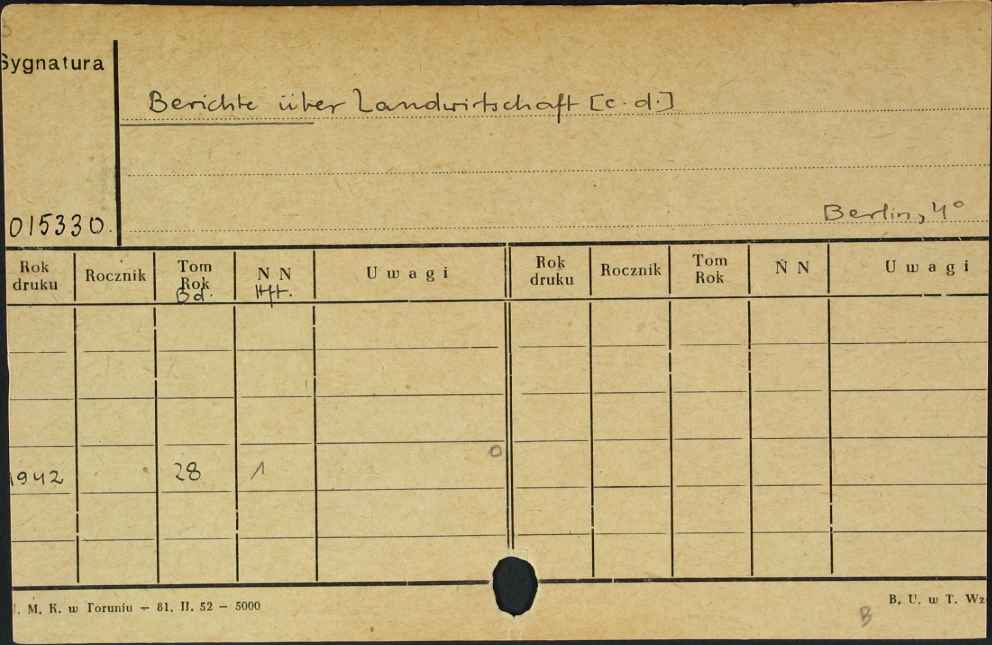 Sygnatura
Berichte über Landwirtschaft [c.d.]
Berlin, 4°
015330.
Rok druku Rocznik Tom Rok Bd. N N Hft. Uwagi Rok druku Rocznik Tom Rok N N Uwagi
1942 28 1
M. K. w Toruniu – 81. II. 52 – 5000
B. U. w T. Wz
B